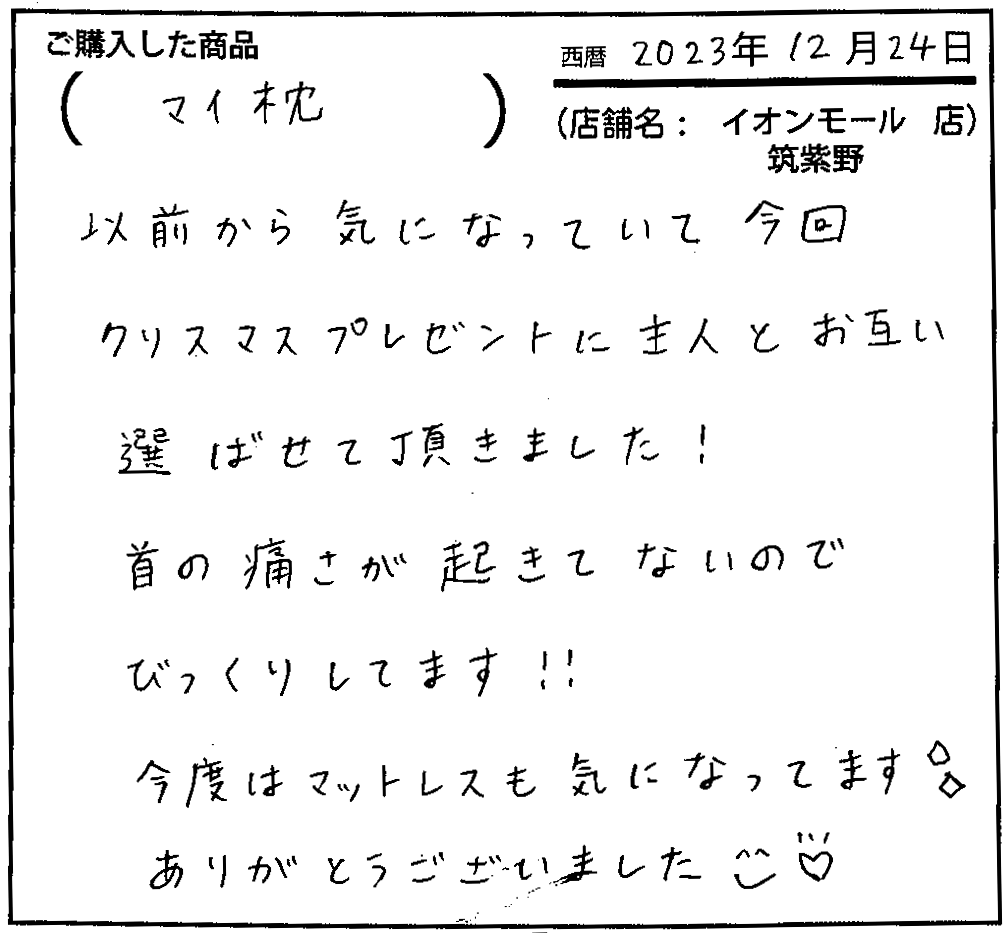 ご購入した商品
( マイ枕 )
西暦 2023年 12月24日
(店舗名: イオンモール 店)
筑紫野
以前から気になっていて今回
クリスマスプレゼントに主人とお互い
選ばせて頂きました!
首の痛さが起きてないので
びっくりしてます!!
今度はマットレスも気になってます
ありがとうございました